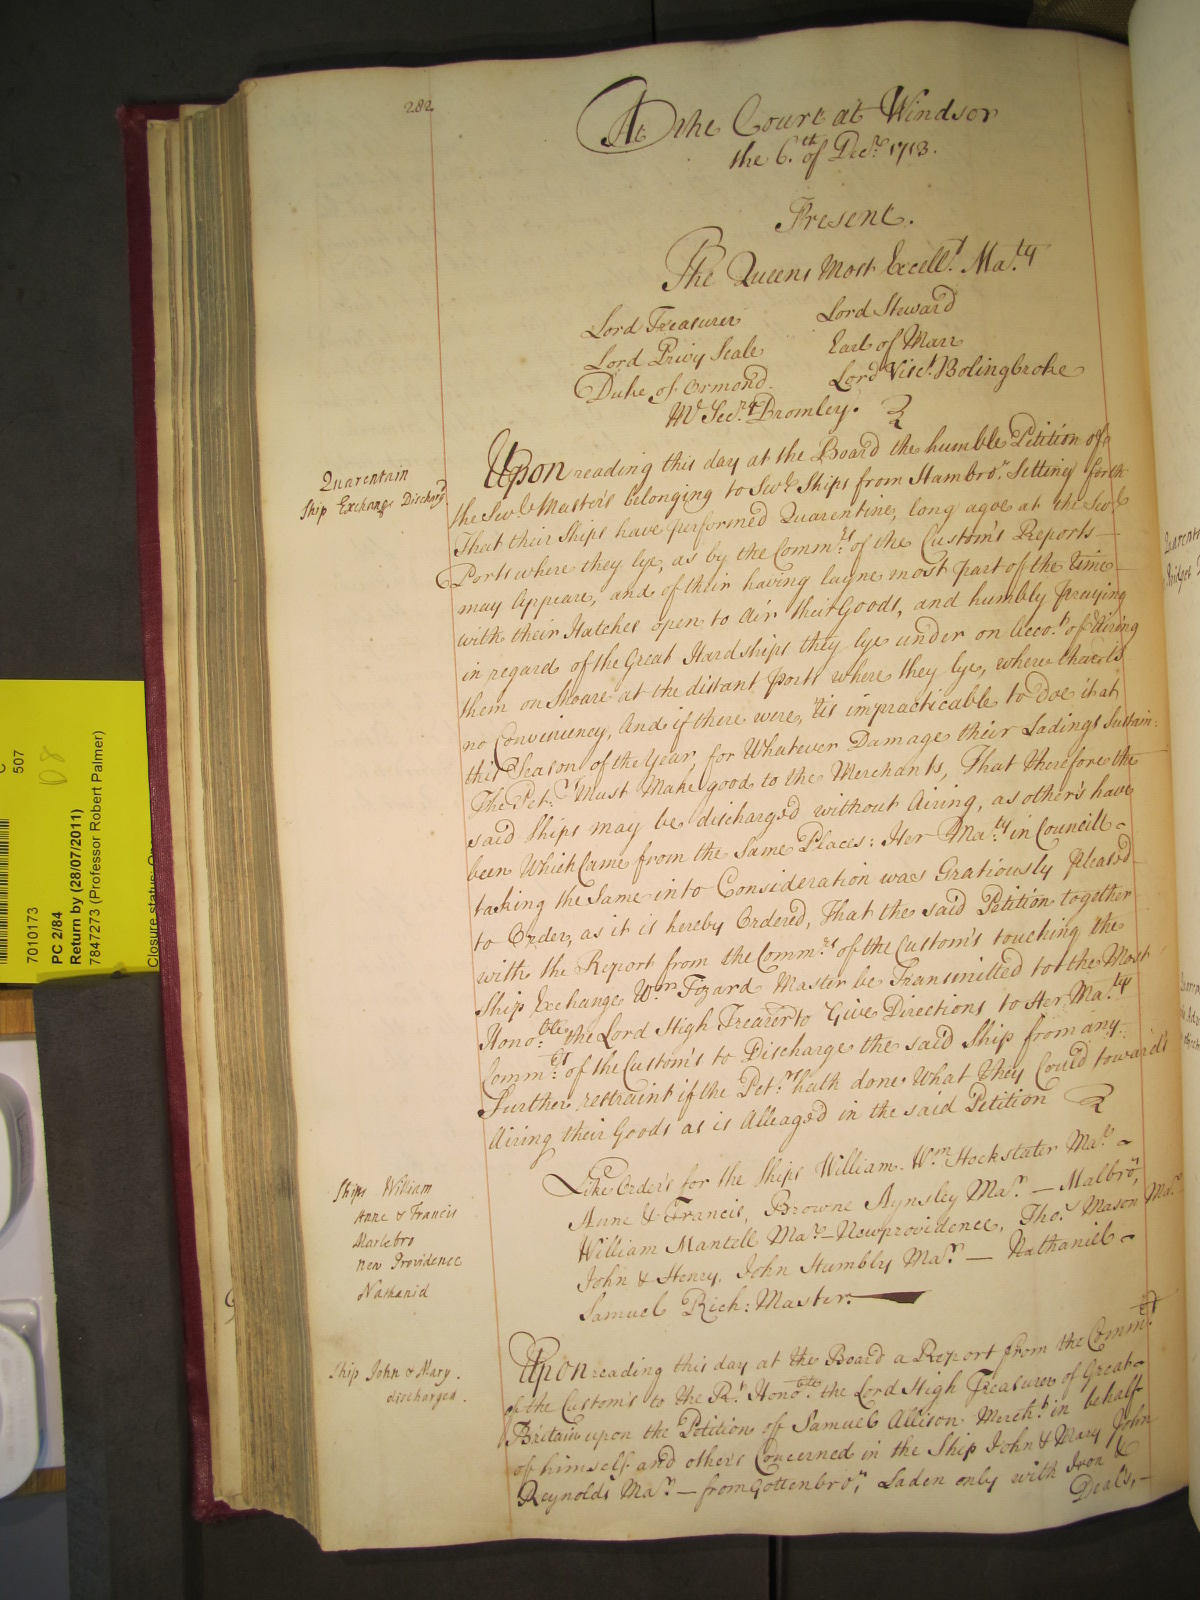 282
At the Court at Windsor
the 6.th of Decr. 1713.
Present.
The Queens Most Excell.t Ma.ty
Lord Treasurer Lord Steward
Lord Privy Seale Earl of Marr
Duke of Ormond. Lord Visc.t Bolingbroke
Mr Sec.ry Bromley.
Quarentain
Ship Exchange Discharg'd
Upon reading this day at the Board the humble Petition of
the Sev.ll Masters belonging to Sev.ll Ships from Hambro.' Setting forth
That their Ships have performed Quarentine, long agoe at the Sev.ll
Ports where they lye, as by the Comm.rs of the Custom's Reports
may Appeare, and of their having layne most part of the time
with their Hatches open to Air their Goods, and humbly praying
in regard of the Great Hardships they lye under on Acco.t of Airing
them on Shoare at the distant Ports where they lye, where there is
no Conveniency, And if there were, 'tis impracticable to doe it at
this Season of the Year, for Whatever Damage their Ladings Sustain:
The Pet.rs Must Make good to the Merchants, That therefore the
said Ships may be discharged without Airing, as other's have
been Which Came from the Same Places: Her Ma.ty in Councill
taking the Same into Consideration was Gratiously pleased
to Order, as it is hereby Ordered, That the said Petition together
with the Report from the Comm.rs of the Custom's touching the
Ship Exchange Wm Fozard Master be Transmitted to the Most
Hono.ble the Lord High Treãrer to Give Directions to Her Ma.tys
Comm.rs of the Custom's to Discharge the said Ship from any
Further restraint if the Pet.rs hath done What they Could towards
Airing their Goods as is Alleaged in the said Petition
Ships William
Anne & Francis
Marlebro
New Providence
Nathaniel
Like Orders for the Ships William. Wm Hockstater Ma.r
Anne & Francis, Browne Aynsley Ma.r — Malbro',
William Mantell Ma.r — Newprovidence, Tho.s Mason Ma.r
John & Henry, John Humbly Ma.r — Nathaniel
Samuel Rich: Master.
Ship John & Mary.
discharged.
Upon reading this day at the Board a Report from the Comm.rs
of the Custom's to the R.t Hono.ble the Lord High Treasurer of Great
Britain upon the Petition of Samuel Allison Merch.t in behalf
of himself and others Concerned in the Ship John & Mary John
Reynolds Ma.r — from Gottenbro', Laden only with Iron &
Deal's,
507
7010173
PC 2/84
Return by (28/07/2011)
7847273 (Professor Robert Palmer)
Closure status: